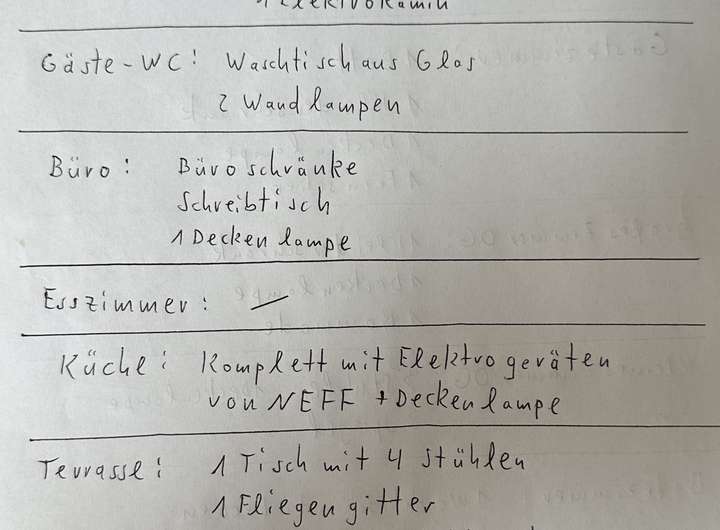 1 Elektrokamin
Gäste-WC: Waschtisch aus Glas
2 Wandlampen
Büro: Büroschränke
Schreibtisch
1 Deckenlampe
Esszimmer: —
Küche: Komplett mit Elektrogeräten
von NEFF + Deckenlampe
Terrasse: 1 Tisch mit 4 Stühlen
1 Fliegengitter